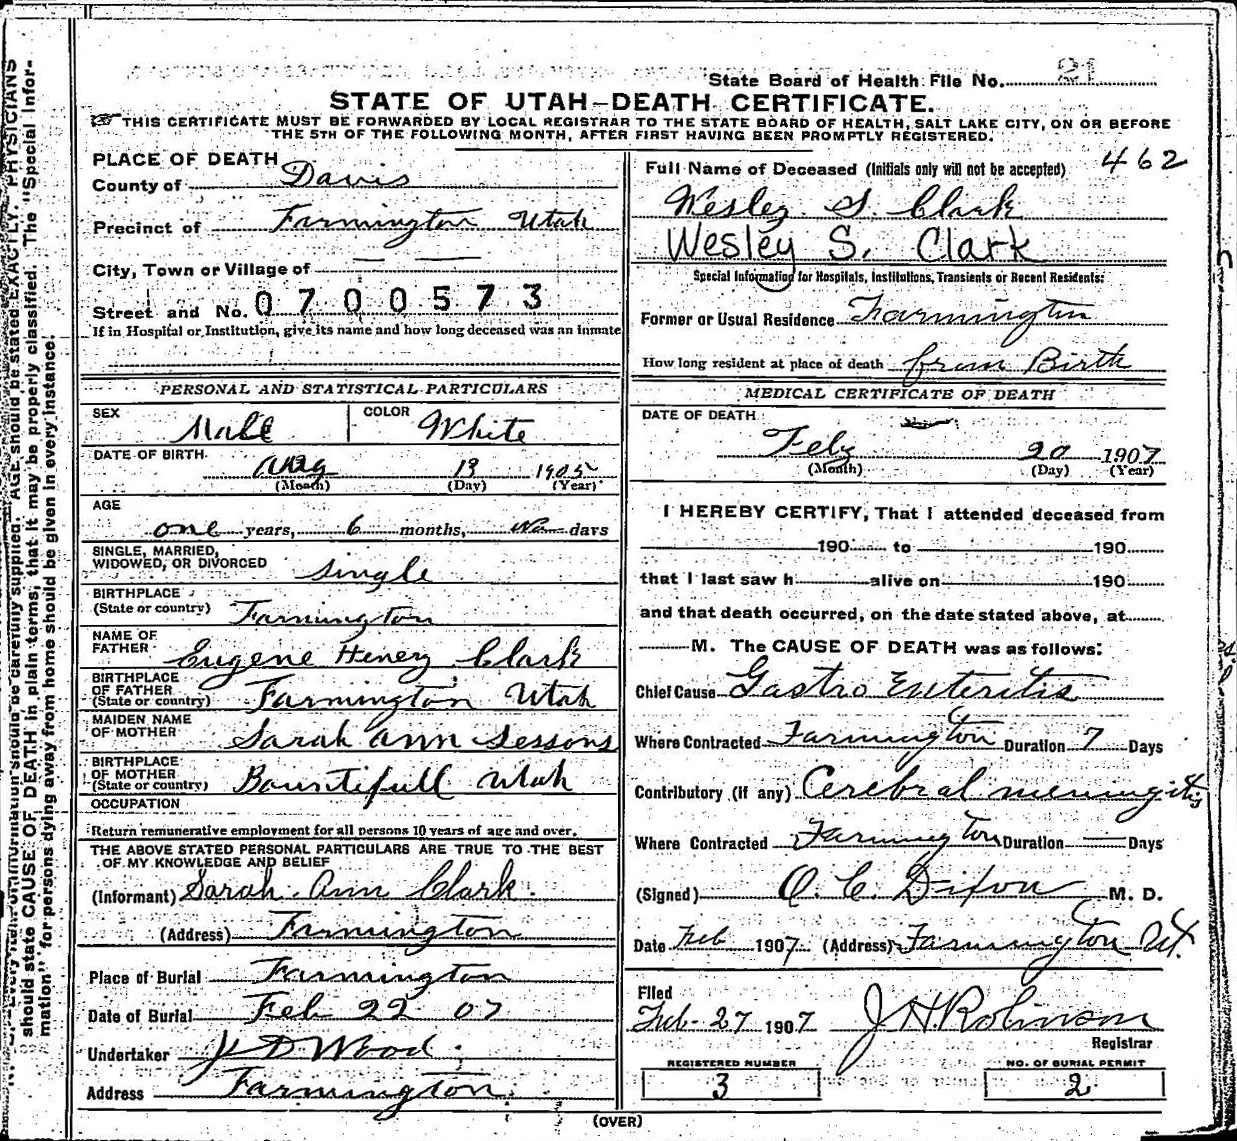 State Board of Health File No. 21
STATE OF UTAH-DEATH CERTIFICATE.
THIS CERTIFICATE MUST BE FORWARDED BY LOCAL REGISTRAR TO THE STATE BOARD OF HEALTH, SALT LAKE CITY, ON OR BEFORE
THE 5TH OF THE FOLLOWING MONTH, AFTER FIRST HAVING BEEN PROMPTLY REGISTERED.
PLACE OF DEATH
County of Davis
Precinct of Farmington Utah
City, Town or Village of
Street and No. 0700573
If in Hospital or Institution, give its name and how long deceased was an inmate
PERSONAL AND STATISTICAL PARTICULARS
SEX Male COLOR White
DATE OF BIRTH
Aug 13 1905
(Month) (Day) (Year)
AGE
one years, 6 months, days
SINGLE, MARRIED,
WIDOWED, OR DIVORCED single
BIRTHPLACE
(State or country) Farmington
NAME OF
FATHER Eugene Henry Clark
BIRTHPLACE
OF FATHER
(State or country) Farmington Utah
MAIDEN NAME
OF MOTHER Sarah Ann Sessons
BIRTHPLACE
OF MOTHER
(State or country) Bountifull Utah
OCCUPATION
Return remunerative employment for all persons 10 years of age and over.
THE ABOVE STATED PERSONAL PARTICULARS ARE TRUE TO THE BEST
OF MY KNOWLEDGE AND BELIEF
(Informant) Sarah Ann Clark
(Address) Farmington
Place of Burial Farmington
Date of Burial Feb 22 07
Undertaker J D Wood
Address Farmington
Full Name of Deceased (Initials only will not be accepted) 462
Wesley S. Clark
Wesley S. Clark
Special Information for Hospitals, Institutions, Transients or Recent Residents:
Former or Usual Residence Farmington
How long resident at place of death from Birth
MEDICAL CERTIFICATE OF DEATH
DATE OF DEATH
Feby 20 1907
(Month) (Day) (Year)
I HEREBY CERTIFY, That I attended deceased from
190 to 190
that I last saw h alive on 190
and that death occurred, on the date stated above, at
M. The CAUSE OF DEATH was as follows:
Chief Cause Gastro Enteritis
Where Contracted Farmington Duration 7 Days
Contributory (if any) Cerebral meningitis
Where Contracted Farmington Duration Days
(Signed) O. C. Dixon M. D.
Date Feb 1907 (Address) Farmington Ut.
Filed
Feb. 27 1907 J H. Robinson
Registrar
REGISTERED NUMBER
3
NO. OF BURIAL PERMIT
2
(OVER)
should be carefully supplied. AGE should be stated EXACTLY. PHYSICIANS
should state CAUSE OF DEATH in plain terms, that it may be properly classified. The "Special Infor-
mation" for persons dying away from home should be given in every instance.